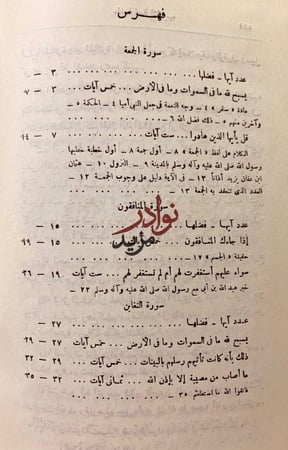 فهرس
سورة الجمعة
عدد آيها - فضلها ... ٣ -
يسبح لله ما فى السموات وما فى الأرض ... خمس آيات ... ٣ - ٧
مادة « سفر » ٤ - وجه النعمة فى جعل النبى أميا ٤ - الحكمة ٥ -
وآخرين منهم ٥ - ذلك فضل الله ٦ -
قل يأيها الذين هادوا ... ست آيات ... ٧ - ١٤
الكلام على لفظ « الجمعة » ٨ - أول جمعة ٨ - أول خطبة خطبها
رسول الله صلى الله عليه وآله وسلم بالمدينة ٩ - النزول ١٠ - عثمان
ابن عفان يزيد أذانا ١٢ - فى الآية دليل على وجوب الجمعة ١٢ -
العدد الذى تنعقد به الجمعة ١٣
سورة المنافقون
عدد آيها - فضلها ... ١٥ -
إذا جاءك المنافقون ... خمس ... ١٥ - ١٩
حقيقة « الجسم » ١٧ -
سواء عليهم أستغفرت لهم أم لم تستغفر لهم ... ست آيات ١٩ - ٢٦
خبر عبد الله بن أبى مع رسول الله صلى الله عليه وآله وسلم ٢٢
سورة التغابن
عدد آيها - فضلها ... ٢٧ -
يسبح لله ما فى السموات وما فى الأرض ... خمس آيات ... ٢٧ - ٢٩
ذلك بأنه كانت تأتيهم رسلهم بالبينات ... خمس آيات ... ٢٩ - ٣٢
ما أصاب من مصيبة إلا بإذن الله ... ثمانى آيات ... ٣٢ - ٣٥
فاتقوا الله ما استطعتم ٣٥ -
نوادر
مزيد